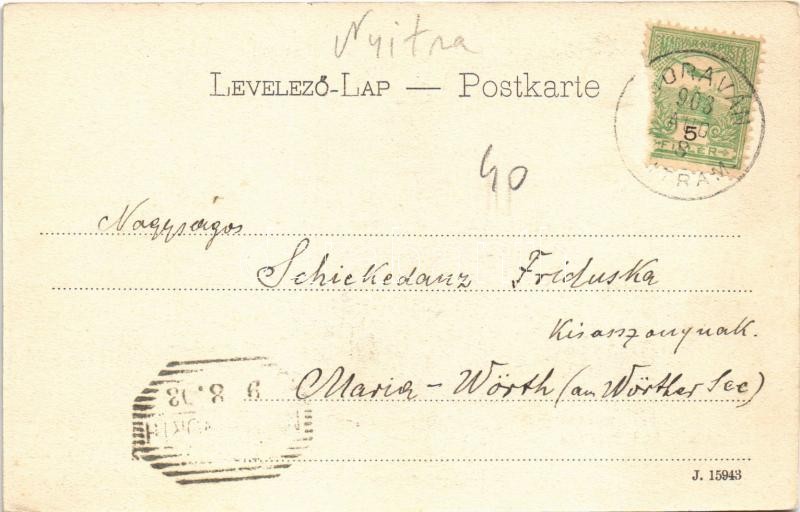 Nyitra
LEVELEZŐ-LAP — Postkarte
MAGYAR KIR. POSTA
5
FILLÉR
903
AUG
8
40
Nagyságos
Schickedanz Friduska
Kisasszonynak.
Maria-Wörth (am Wörther See)
9 8.03
J. 15943